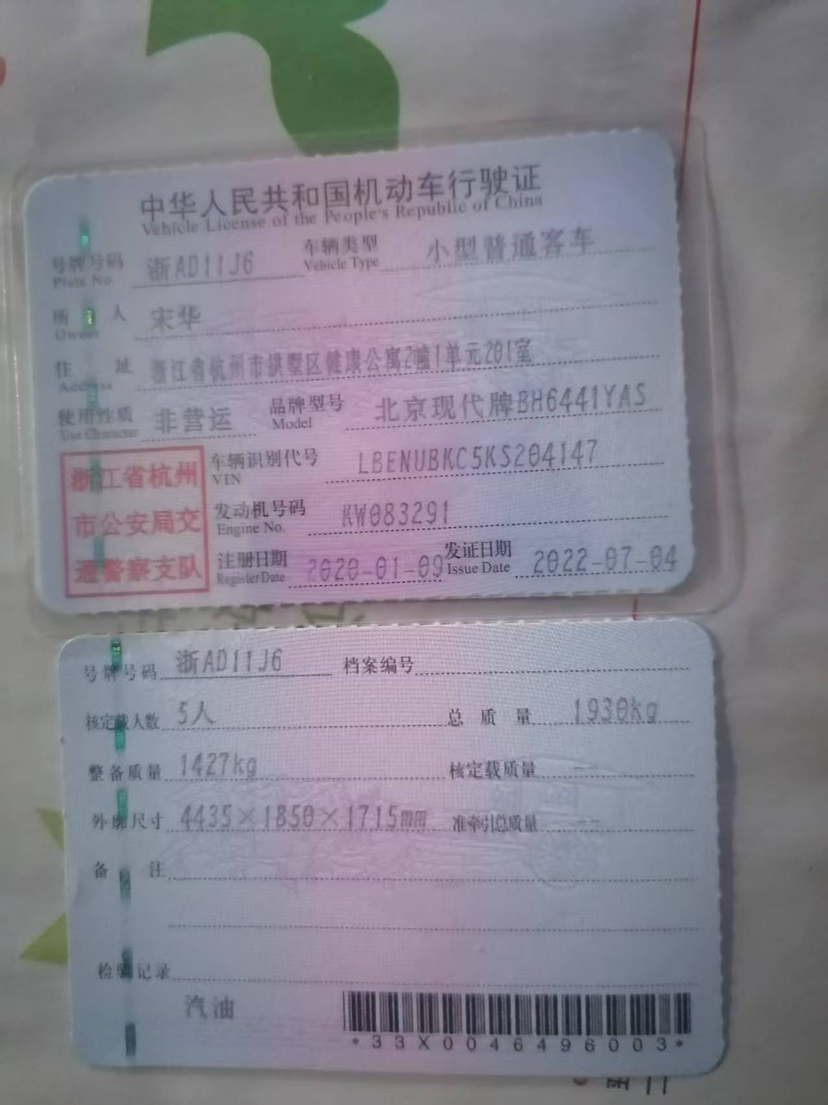 中华人民共和国机动车行驶证
Vehicle License of the People's Republic of China
号牌号码 浙AD11J6 车辆类型 小型普通客车
Plate No. Vehicle Type
所有人 宋华
Owner
住址 浙江省杭州市拱墅区健康公寓2幢1单元201室
Address
使用性质 非营运 品牌型号 北京现代牌BH6441YAS
Use Character Model
浙江省杭州
市公安局交
通警察支队
车辆识别代号 LBENUBKC5KS204147
VIN
发动机号码 KW083291
Engine No.
注册日期 2020-01-09 发证日期 2022-07-04
Register Date Issue Date
号牌号码 浙AD11J6 档案编号
核定载人数 5人 总质量 1930kg
整备质量 1427kg 核定载质量 --
外廓尺寸 4435×1850×1715mm 准牵引总质量 --
备注
检验记录
汽油
*33X0046496003*